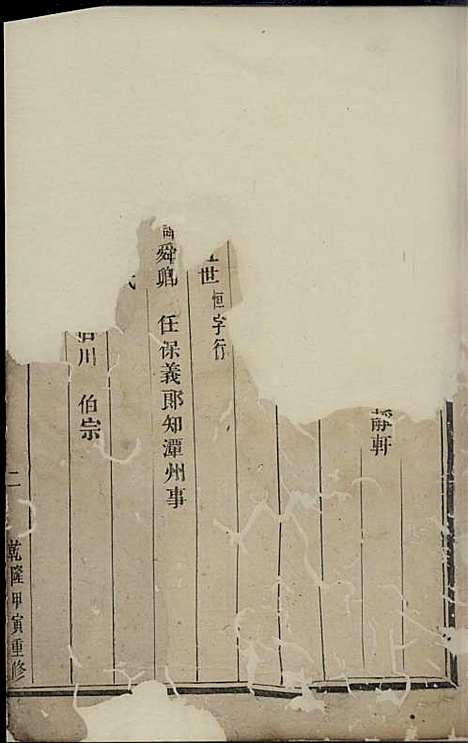 靜軒
世恒字行
舜卿 任保義郎知潭州事
川 伯宗
二 乾隆甲寅重修